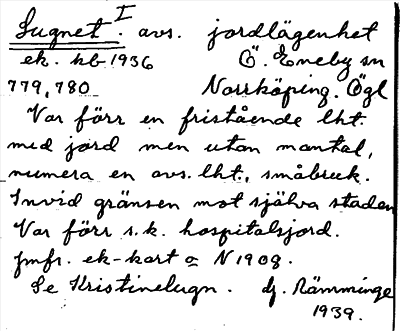 Sugnet I. avs. jordlägenhet
ek. kb 1936 Ö. Eneby sn
779,780 Norrköping. Ögl
Var förr en fristående lht.
med jord men utan mantal,
numera en avs. lht., småbruk.
Invid gränsen mot själva staden
Var förr s.k. hospitalsjord.
jmfr. ek-kart o N 1908.
Se Kristinelugn. dj. Rämminge
1939.